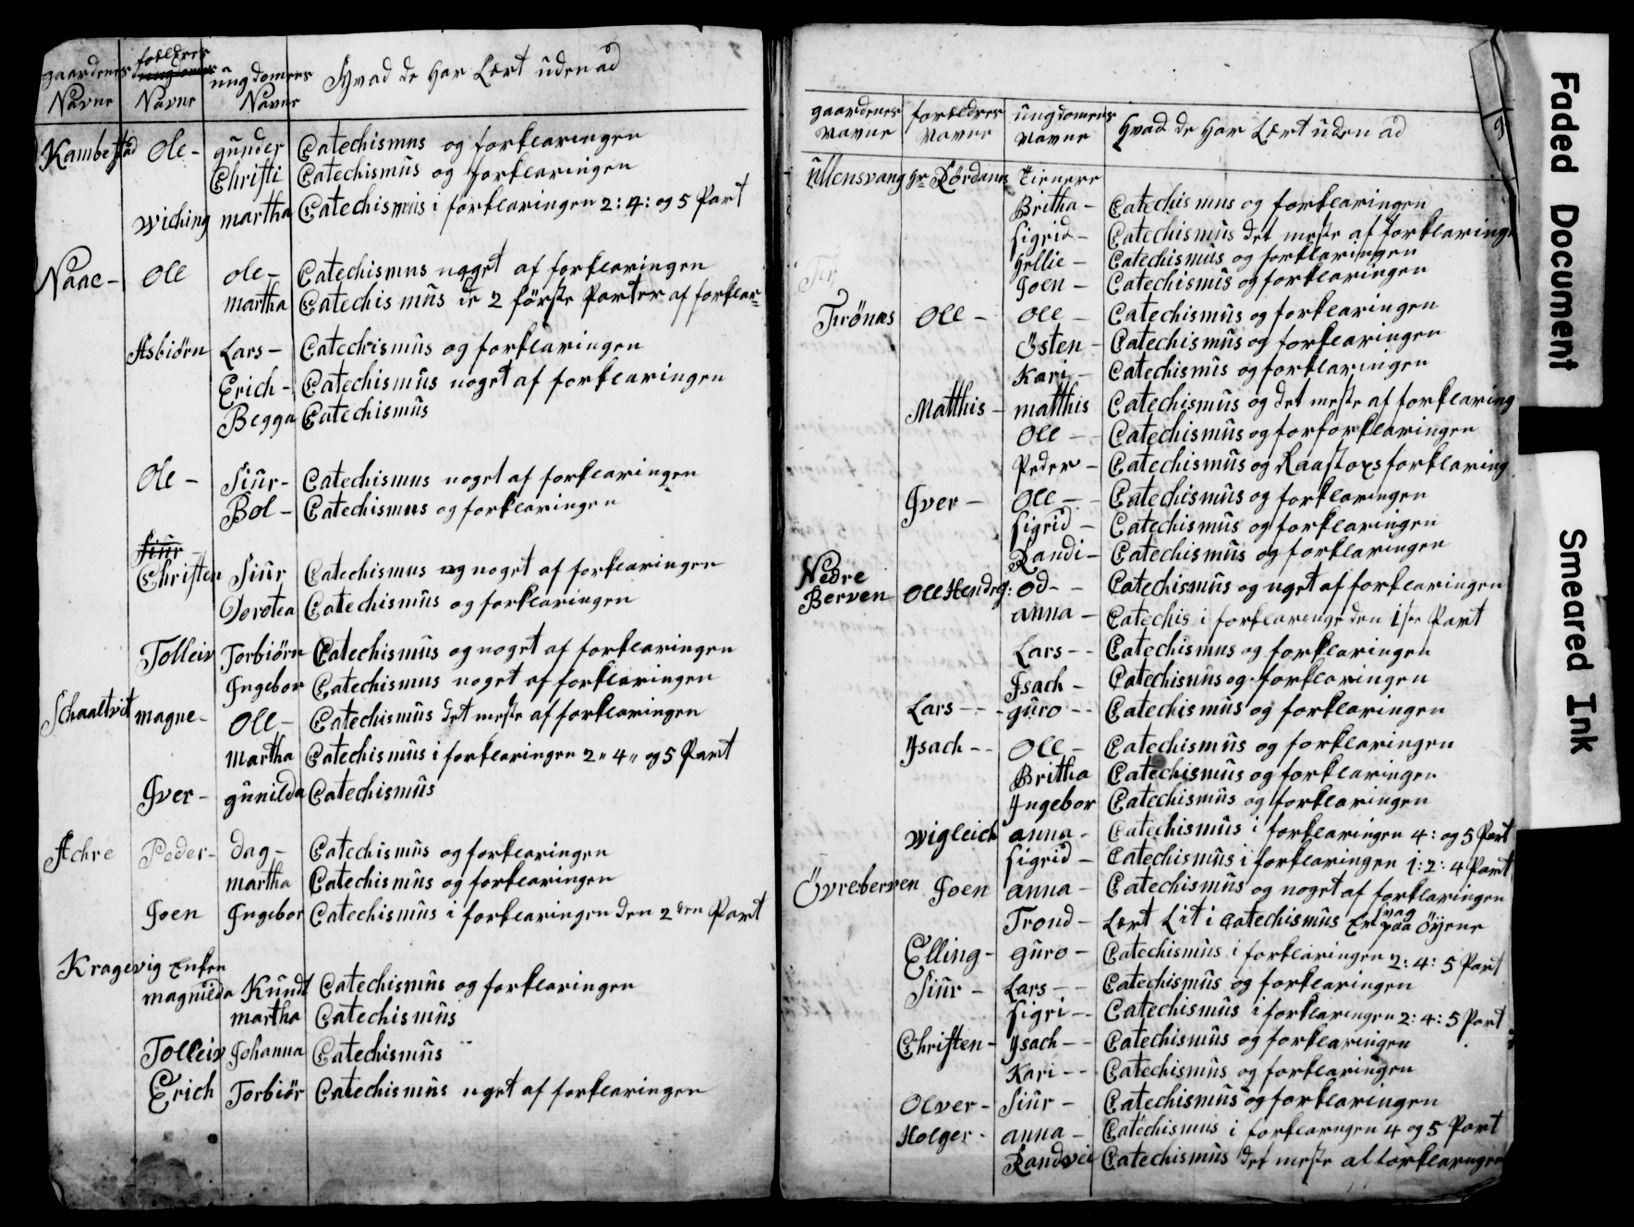 gaardenes Navne | forældres Navne | ungdomens Navne | Hvad de Har Lært uden ad
Kambestad Ole - gunder Catechismus og forklaringen
Christi Catechismus og forklaringen
Wiching martha Catechismus i forklaringen 2: 4: og 5 Part
Naae - Ole ole - Catechismus nget af forklaringen
martha Catechismus de 2 förste Parter af forklar=
Asbiörn Lars - Catechismus og forklaringen
Erich - Catechismus noget af forklaringen
Begga Catechismus
Ole - Siur - Catechismus noget af forklaringen
Bol - Catechismus og forklaringen
Siur
Christen Siur Catechismus og noget af forklaringen
Dorotea Catechismus og forklaringen
Tolleiv Torbiörn Catechismus og noget af forklaringen
Ingebor Catechismus noget af forklaringen
Schaaltvit magne - Ole - Catechismus det meste af forklaringen
Martha Catechismus i forklaringen 2" 4" og 5 Part
Iver - gunilda Catechismus
Achre Peder - dag - Catechismus og forklaringen
martha Catechismus og forklaringen
Joen Ingebor Catechismus i forklaringen den 2den Part
Kragevig Enken
magnilda Kundt Catechismus og forklaringen
martha Catechismus
Tolleiv Johanna Catechismus
Erich Torbiör Catechismus nget af forklaringen
9
gaardenes navne | forældres navne | ungdomens navne | Hvad de Har Lært uden ad
Ullensvang Hr Dördans tienere
Britha - Catechismus og forklaringen
Sigrid - Catechismus det meste af forklaringe
Hellie - Catechismus og forklaringen
Joen - Catechismus og forklaringen
Tironæs Ole - Ole - Catechismus og forklaringen
Östen - Catechismus og forklaringen
Kari - Catechismus og forklaringen
Matthis - matthis Catechismus og det meste af forklaring
Ole - Catechismus og forforklaringen
Peder - Catechismus og Kaastoxs forklaring
Iver - Ole - - Catechismus og forklaringen
Sigrid - Catechismus og forklaringen
Randi - Catechismus og forklaringen
Nedre
Berven Ole Hendrg: od - - Catechismus og nget af forklaringen
anna - Catechis i forklaringe den 1ste Part
Lars - - Catechismus og forklaringen
Isach - Catechismus og forklaringen
Lars - - - guro - - Catechismus og forklaringen
Isach - - Ole - Catechismus og forklaringen
Britha Catechismus og forklaringen
Ingebor Catechismus og forklaringen
Wigleich anna - Catechismus i forklaringen 4: og 5 Part
Sigrid - Catechismus i forklaringen 1: 2: 4 Part
Övreberven Joen anna - Catechismus og noget af forklaringen
Trond - Lært Lit i Catechismus Er svag paa Öyene
Elling - guro - Catechismus i forklaringen 2: 4: 5 Part
Siur - Lars - - Catechismus og forklaringen
Sigri - - Catechismus i forklaringen 2: 4: 5 Part
Christen - Isach - - Catechismus og forklaringen
Kari - - Catechismus og forklaringen
Olver - Siur - Catechismus og forklaringen
Holger - anna - Catechismus i forklaringen 4 og 5 Part
Randvei Catechismus det meste af forklaringen
Faded Document
Smeared Ink